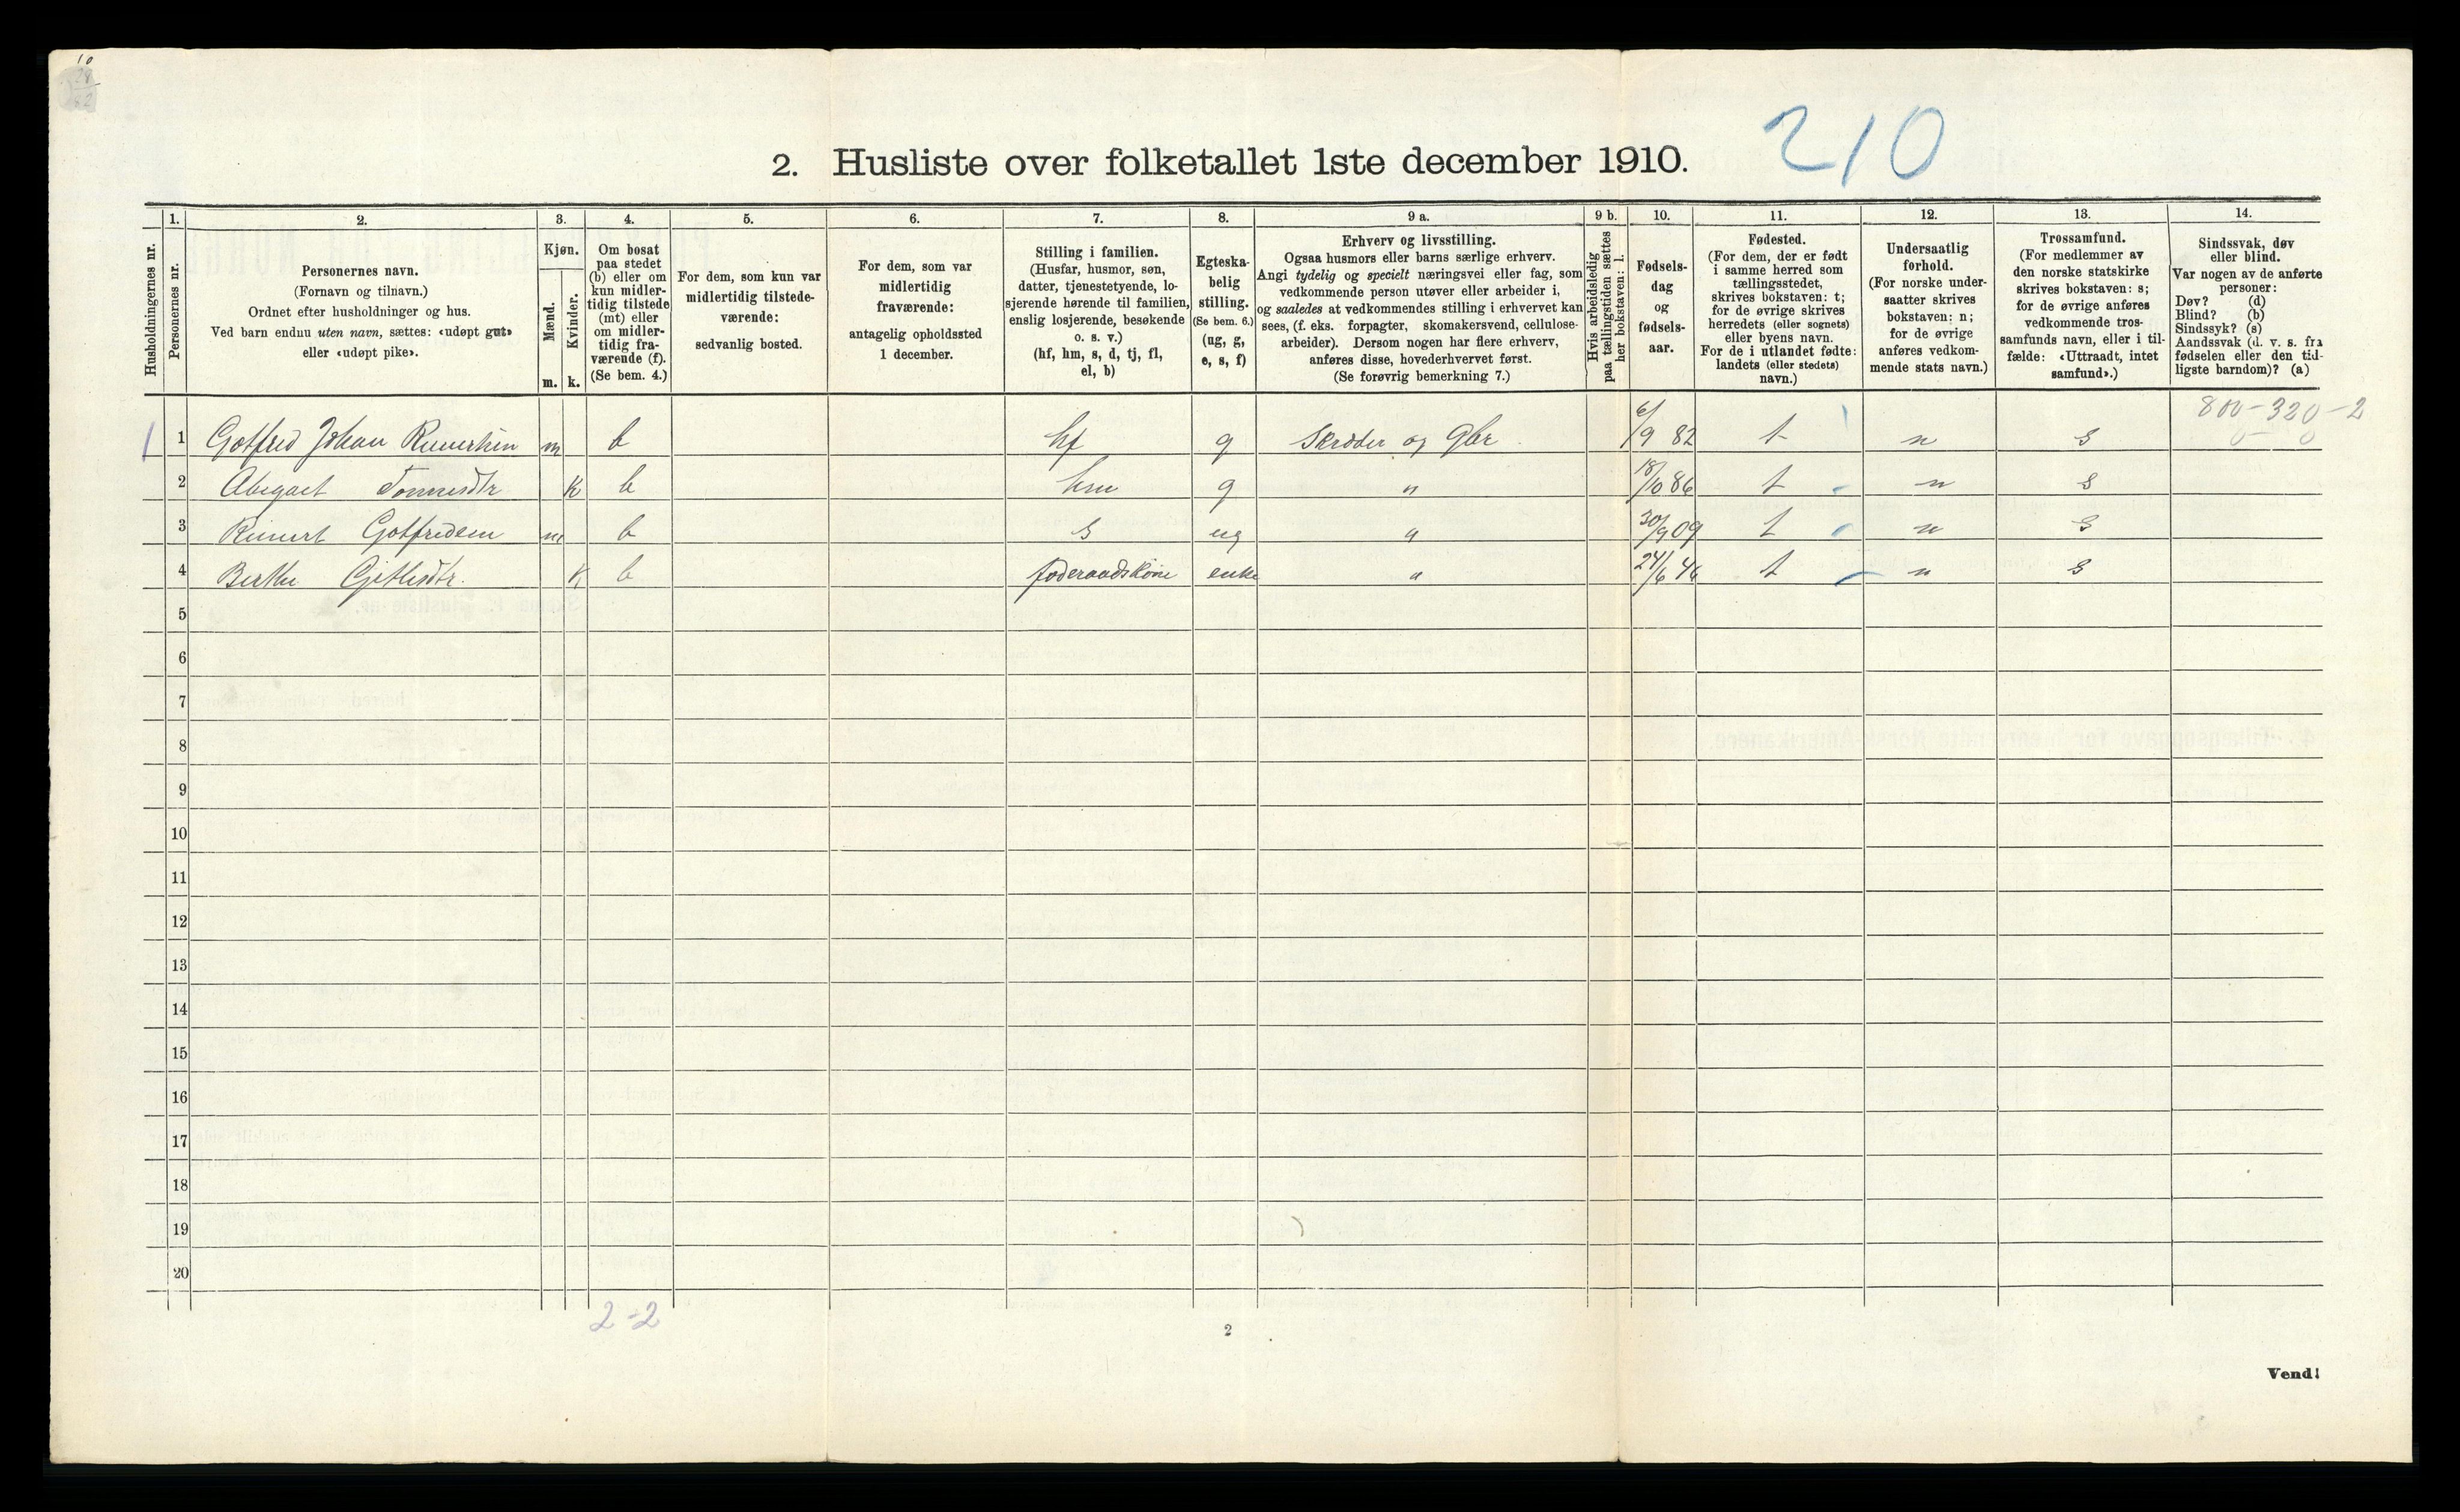 210
2. Husliste over folketallet 1ste december 1910.
Husholdningernes nr.
1.
Personernes nr.
2.
Personernes navn.
(Fornavn og tilnavn.)
Ordnet efter husholdninger og hus.
Ved barn endnu uten navn, sættes: «udøpt gut»
eller «udøpt pike».
3.
Kjøn.
Mænd.
Kvinder.
m. k.
4.
Om bosat
paa stedet
(b) eller om
kun midler-
tidig tilstede
(mt) eller
om midler-
tidig fra-
værende (f).
(Se bem. 4.)
5.
For dem, som kun var
midlertidig tilstede-
værende:
sedvanlig bosted.
6.
For dem, som var
midlertidig
fraværende:
antagelig opholdssted
1 december.
7.
Stilling i familien.
(Husfar, husmor, søn,
datter, tjenestetyende, lo-
sjerende hørende til familien,
enslig losjerende, besøkende
o. s. v.)
(hf, hm, s, d, tj, fl,
el, b)
8.
Egteska-
belig
stilling.
(Se bem. 6.)
(ug, g,
e, s, f)
9 a.
Erhverv og livsstilling.
Ogsaa husmors eller barns særlige erhverv.
Angi tydelig og specielt næringsvei eller fag, som
vedkommende person utøver eller arbeider i,
og saaledes at vedkommendes stilling i erhvervet kan
sees, (f. eks. forpagter, skomakersvend, cellulose-
arbeider). Dersom nogen har flere erhverv,
anføres disse, hovederhvervet først.
(Se forøvrig bemerkning 7.)
9 b.
Hvis arbeidsledig
paa tællingstiden sættes
her bokstaven: l.
10.
Fødsels-
dag
og
fødsels-
aar.
11.
Fødested.
(For dem, der er født
i samme herred som
tællingsstedet,
skrives bokstaven: t;
for de øvrige skrives
herredets (eller sognets)
eller byens navn.
For de i utlandet fødte:
landets (eller stedets)
navn.)
12.
Undersaatlig
forhold.
(For norske under-
saatter skrives
bokstaven: n;
for de øvrige
anføres vedkom-
mende stats navn.)
13.
Trossamfund.
(For medlemmer av
den norske statskirke
skrives bokstaven: s;
for de øvrige anføres
vedkommende tros-
samfunds navn, eller i til-
fælde: «Uttraadt, intet
samfund».)
14.
Sindssvak, døv
eller blind.
Var nogen av de anførte
personer:
Døv? (d)
Blind? (b)
Sindssyk? (s)
Aandssvak (d. v. s. fra
fødselen eller den tid-
ligste barndom)? (a)
800-320-2
0-0
1 1 Gotfred Johan m b hf g Skrædder og Gbr. 6/9 82 t n s
2 Abegael Tønnesdtr k b hm g " 18/10 86 t n s
3 Reinert Gotfredsen m b s ug " 30/9 09 t n s
4 Berthe k b føderaadskone enke " 24/6 46 t n s
5
6
7
8
9
10
11
12
13
14
15
16
17
18
19
20
2-2
2
Vend!